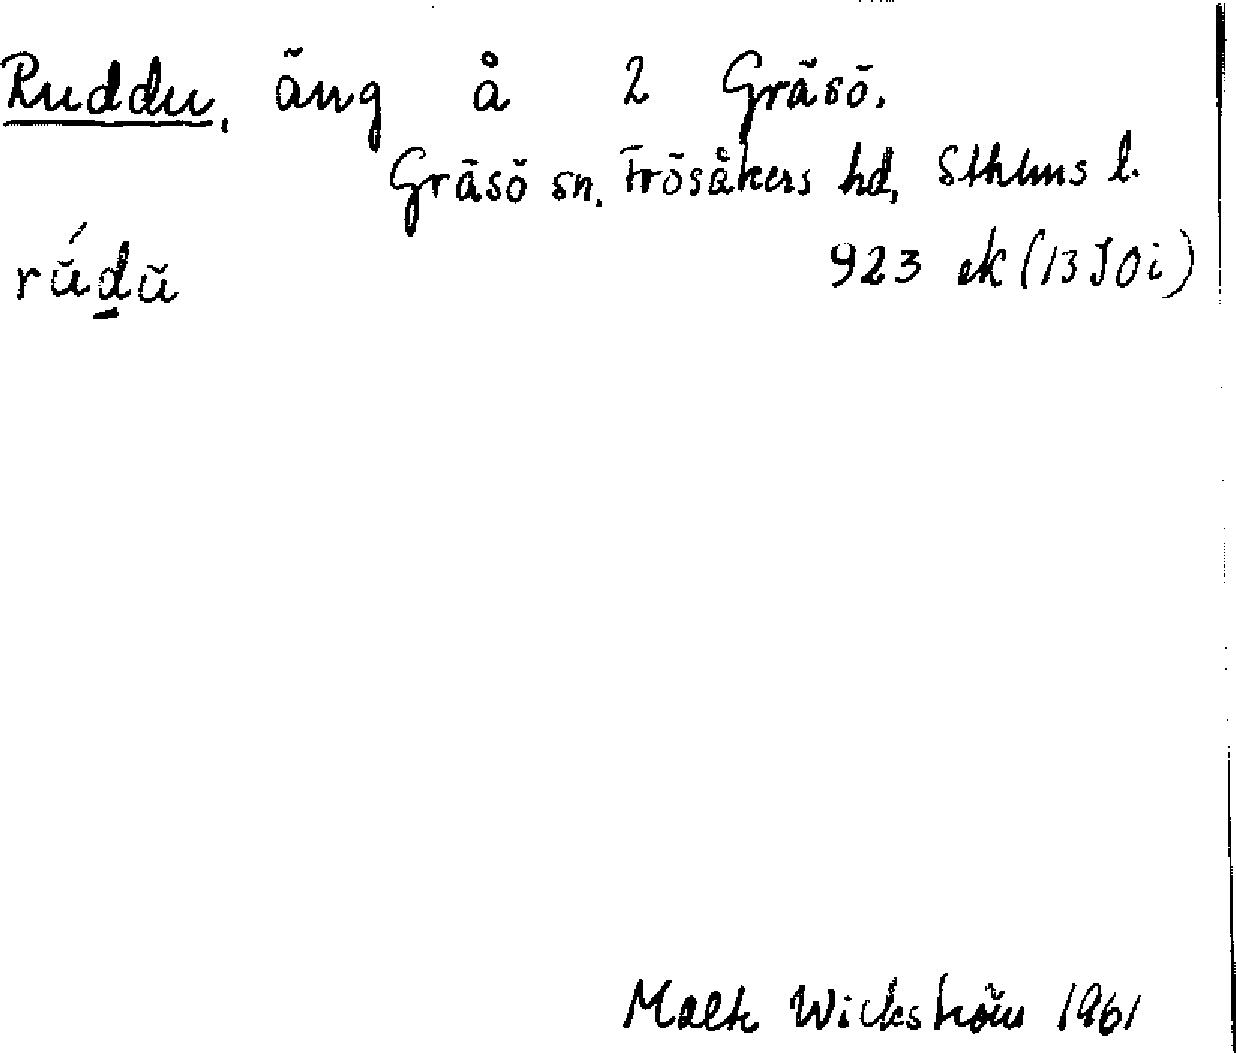 Ruddu, äng å 2 Gräsö.
Gräsö sn, Frösåkers hd, Sthlms l.
rŭ́d̲ŭ 923 ek (13 J 0 i)
Wickström 1961